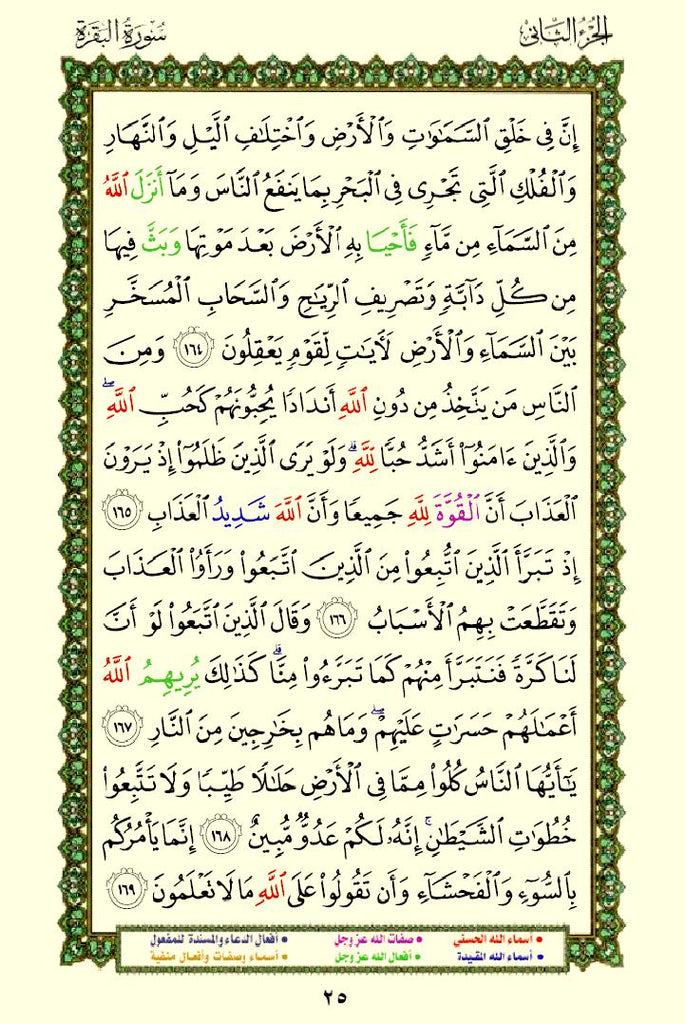 الجزء الثاني
سورة البقرة
إِنَّ فِي خَلْقِ ٱلسَّمَٰوَٰتِ وَٱلْأَرْضِ وَٱخْتِلَٰفِ ٱلَّيْلِ وَٱلنَّهَارِ
وَٱلْفُلْكِ ٱلَّتِي تَجْرِي فِي ٱلْبَحْرِ بِمَا يَنفَعُ ٱلنَّاسَ وَمَآ أَنزَلَ ٱللَّهُ
مِنَ ٱلسَّمَآءِ مِن مَّآءٍ فَأَحْيَا بِهِ ٱلْأَرْضَ بَعْدَ مَوْتِهَا وَبَثَّ فِيهَا
مِن كُلِّ دَآبَّةٍ وَتَصْرِيفِ ٱلرِّيَٰحِ وَٱلسَّحَابِ ٱلْمُسَخَّرِ
بَيْنَ ٱلسَّمَآءِ وَٱلْأَرْضِ لَءَايَٰتٍ لِّقَوْمٍ يَعْقِلُونَ ١٦٤ وَمِنَ
ٱلنَّاسِ مَن يَتَّخِذُ مِن دُونِ ٱللَّهِ أَندَادًا يُحِبُّونَهُمْ كَحُبِّ ٱللَّهِ ۖ
وَٱلَّذِينَ ءَامَنُوٓا۟ أَشَدُّ حُبًّا لِّلَّهِ ۗ وَلَوْ يَرَى ٱلَّذِينَ ظَلَمُوٓا۟ إِذْ يَرَوْنَ
ٱلْعَذَابَ أَنَّ ٱلْقُوَّةَ لِلَّهِ جَمِيعًا وَأَنَّ ٱللَّهَ شَدِيدُ ٱلْعَذَابِ ١٦٥
إِذْ تَبَرَّأَ ٱلَّذِينَ ٱتُّبِعُوا۟ مِنَ ٱلَّذِينَ ٱتَّبَعُوا۟ وَرَأَوُا۟ ٱلْعَذَابَ
وَتَقَطَّعَتْ بِهِمُ ٱلْأَسْبَابُ ١٦٦ وَقَالَ ٱلَّذِينَ ٱتَّبَعُوا۟ لَوْ أَنَّ
لَنَا كَرَّةً فَنَتَبَرَّأَ مِنْهُمْ كَمَا تَبَرَّءُوا۟ مِنَّا ۗ كَذَٰلِكَ يُرِيهِمُ ٱللَّهُ
أَعْمَٰلَهُمْ حَسَرَٰتٍ عَلَيْهِمْ ۖ وَمَا هُم بِخَٰرِجِينَ مِنَ ٱلنَّارِ ١٦٧
يَٰٓأَيُّهَا ٱلنَّاسُ كُلُوا۟ مِمَّا فِي ٱلْأَرْضِ حَلَٰلًا طَيِّبًا وَلَا تَتَّبِعُوا۟
خُطُوَٰتِ ٱلشَّيْطَٰنِ ۚ إِنَّهُۥ لَكُمْ عَدُوٌّ مُّبِينٌ ١٦٨ إِنَّمَا يَأْمُرُكُم
بِٱلسُّوٓءِ وَٱلْفَحْشَآءِ وَأَن تَقُولُوا۟ عَلَى ٱللَّهِ مَا لَا تَعْلَمُونَ ١٦٩
• أسماء الله الحسنى • صفات الله عز وجل • أفعال الدعاء والمسندة للمفعول
• أسماء الله المقيدة • أفعال الله عز وجل • أسماء وصفات وأفعال منفية
٢٥